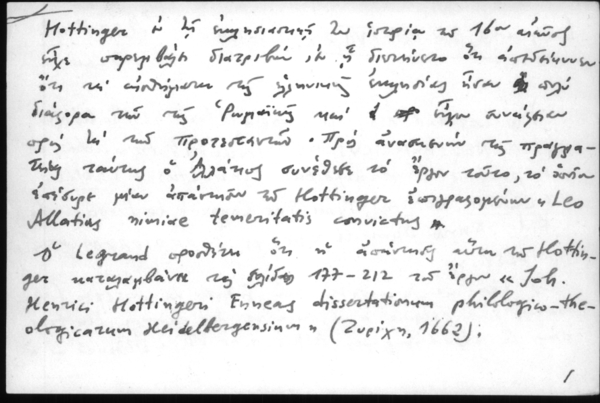 Hottinger ἐν τῇ ἐκκλησιαστικῇ του ἱστορίᾳ τοῦ 16ου αἰῶνος
εἶχε παρεμβάλει διατριβὴν, ἐν ᾗ διετείνετο ὅτι ἀπεδείκνυεν
ὅτι τὰ αἰσθήματα τῆς ἑλληνικῆς ἐκκλησίας ἦσαν πολὺ
διάφορα τῶν τῆς Ῥωμαϊκῆς καὶ εἶχον συνάφειαν
πρὸς τὰ τῶν προτεσταντῶν. Πρὸς ἀνασκευὴν τῆς πραγμα-
τείας ταύτης ὁ Ἀλλάτιος συνέθεσε τὸ ἔργον τοῦτο, τὸ ὁποῖον
ἐπέσυρε μίαν ἀπάντησιν τοῦ Hottinger ἐπιγραφομένην « Leo
Allatius nimiae temeritatis convictus »
Ὁ Legrand προσθέτει ὅτι ἡ ἀπάντησις αὕτη τοῦ Hottin-
ger καταλαμβάνει τὰς σελίδας 177-212 τοῦ ἔργου « Joh.
Henrici Hottingeri Enneas dissertationum philologico-the-
ologicarum Heidelbergensium » (Ζυρίχη, 1662).
1